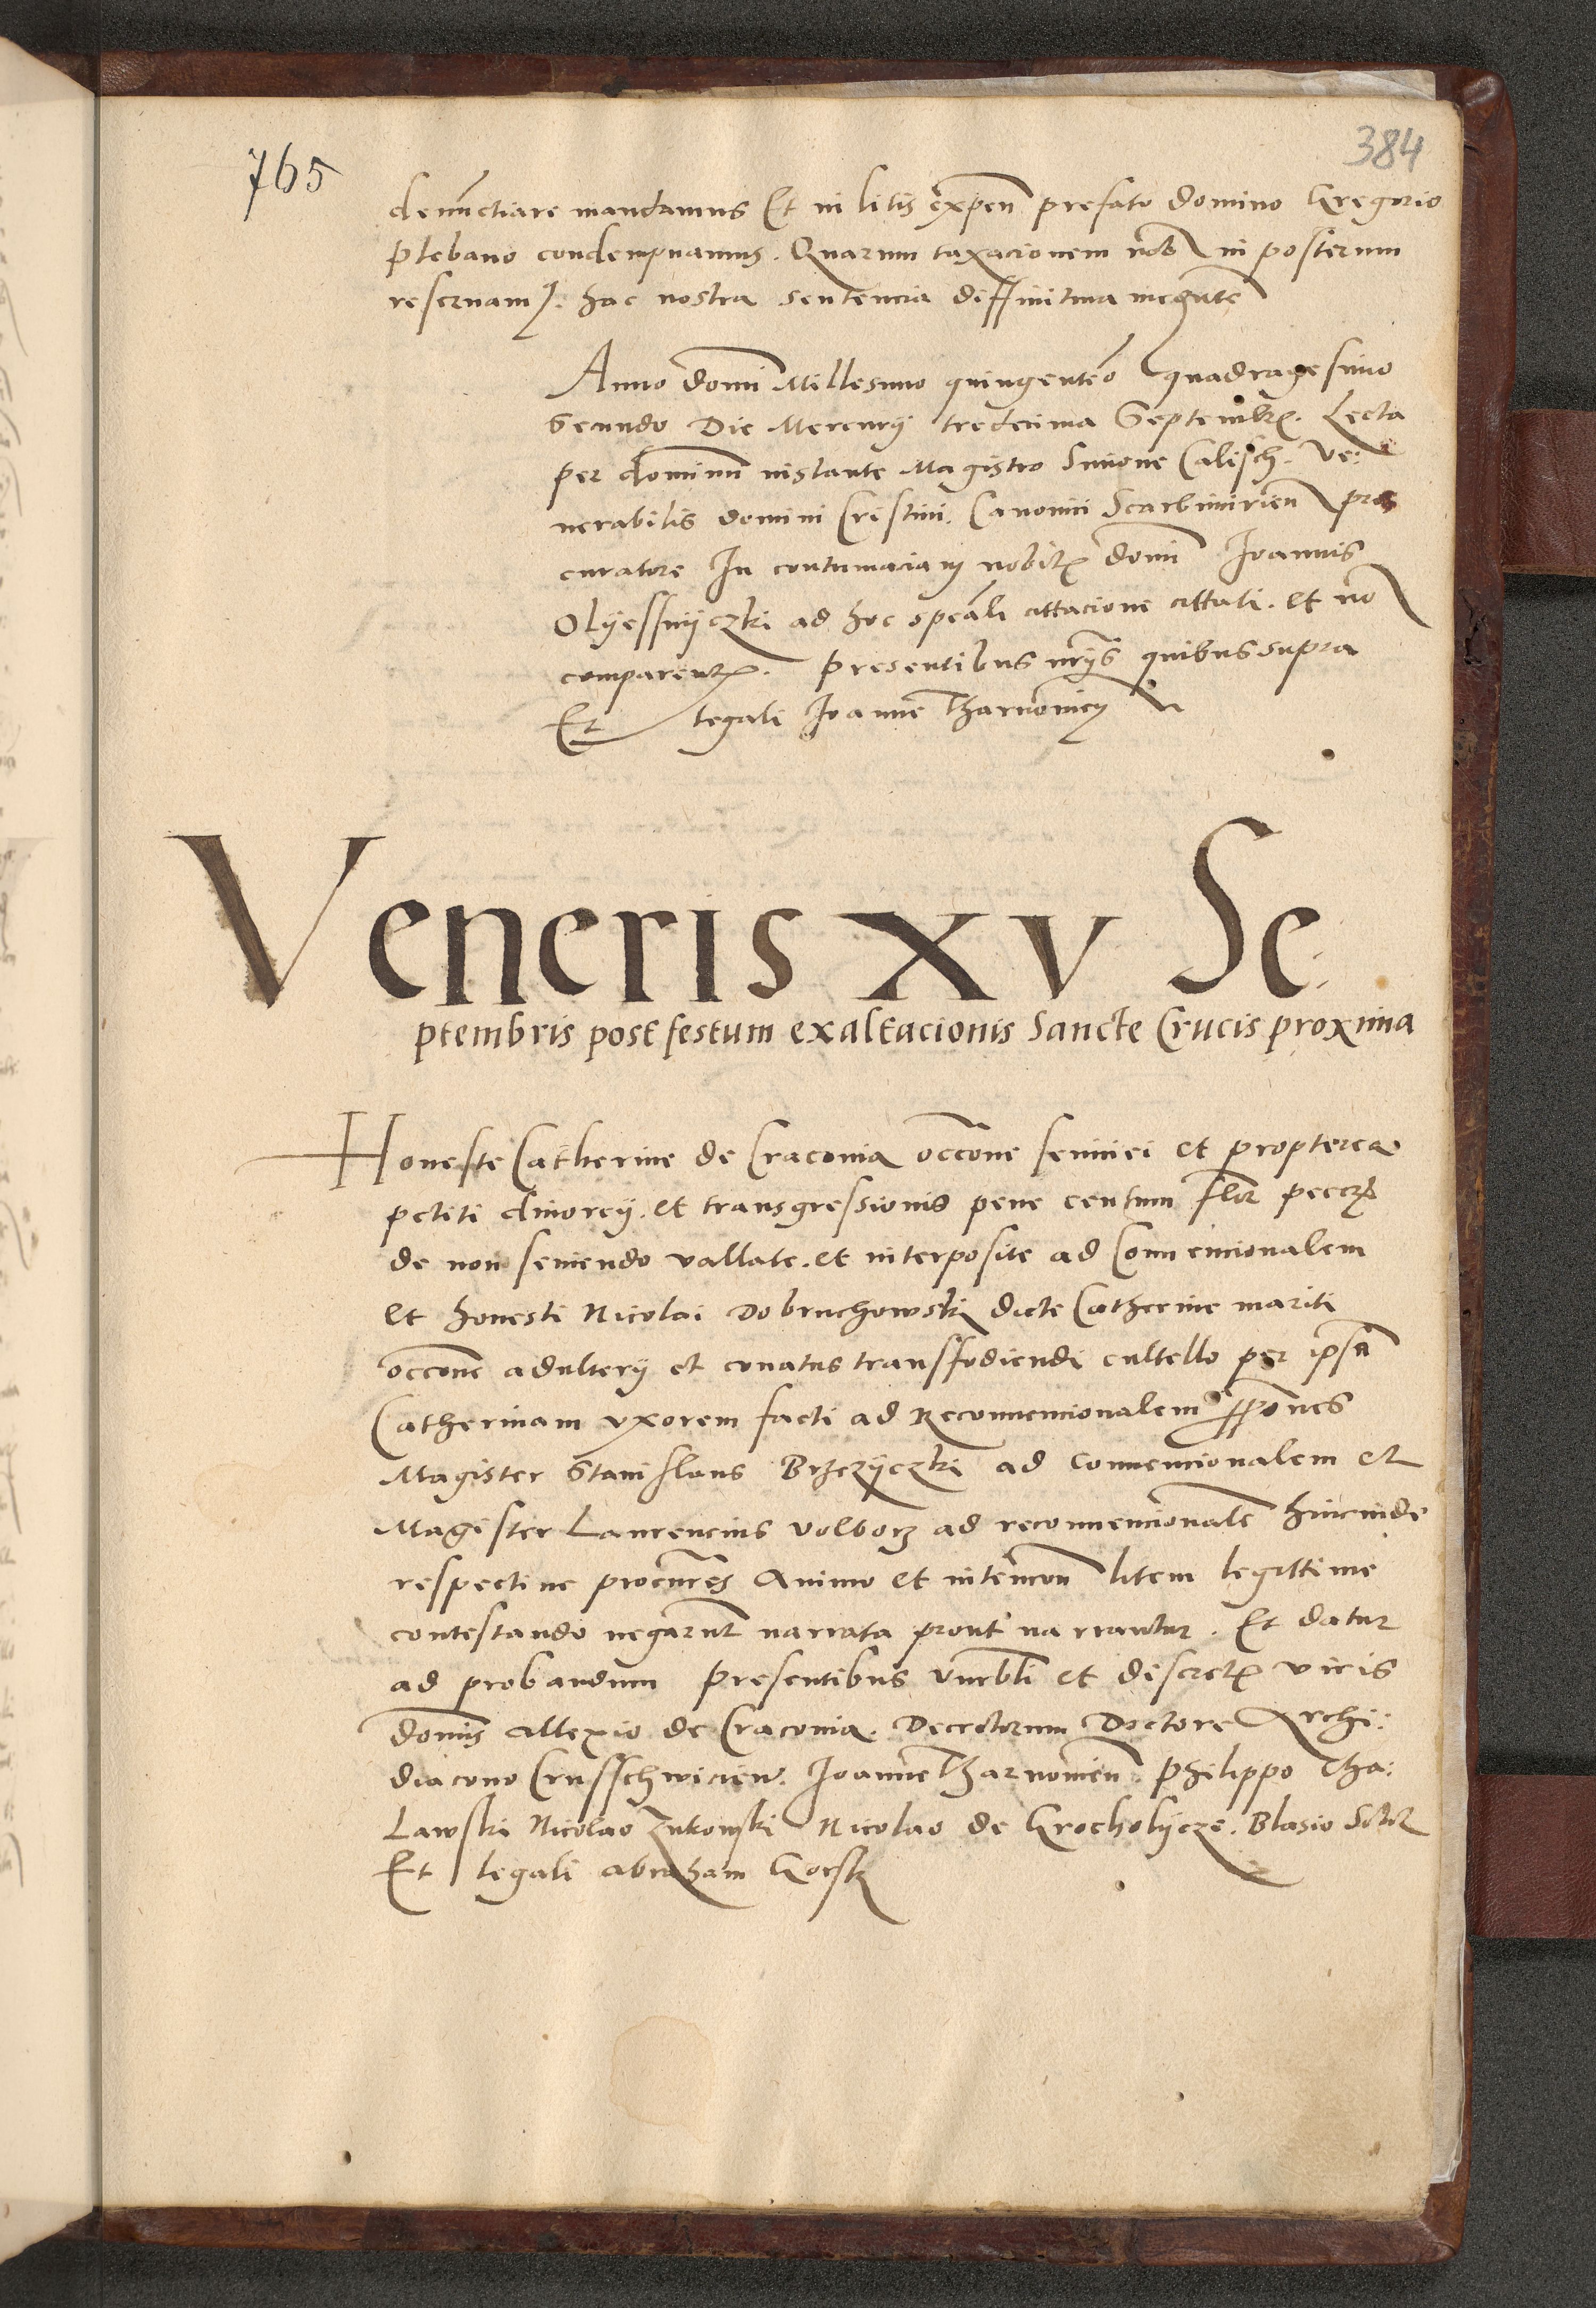 765
384
denu̅ctiare mandamus Et in litis expen̅ prefato domino Gregorio
plebano condempnamus. Quarum taxacionem nob in posterum
reservam9. hac nostra sentencia diffinitiva mediante̅
Anno domi̅ Millesimo quingente̅o quadragesimo
Secundo Die Mercurij tredecima Septembr. Lecta
per dominu̅ instante Magistro Simone Calisch. Ve:
nerabilis domini Cristini. Canonici Scarbimirien̅ pro
curatore In contumaciam nobil domi̅ Ioannis
Olyessnyczki ad hoc spea̅li cittacione cittati. et no̅
comparent. Presentibus quibus supra
Et legali Ioanne Tharnowicy
Veneris XV Se:
ptembris post festum exaltacionis Sancte Crucis proxima
Honeste Catherine de Cracovia occo̅ne seviciei et propterea
petiti divorcij. et transgressionis pene centum flor pecc
de non seviendo vallate. et interposite ad Convencionalem
et honesti Nicolai Dobruchowski dicte Catherine mariti
occo̅ne adulterij et conatus transfodiendi cultello per ipsa̅
Catherinam uxorem facti ad Reconvencionalem ppo̅nes
Magister Stanislaus Brzezyczki ad Convencionalem et
Magister Laurencius Volborz ad reconvencionale̅ hincinde
respective procur̅es Animo et intencon̅ litem legittime
contestando negaru̅t narrata prout narrantur. Et datur
ad probandum Presentibus Vnerbli̅ et discret viris
domi̅s Allexio de Cracovia. Decretorum Doctore Archi:
diacono Crusschwicien. Ioanne Tharnowien̅. Philippo Cha:
Lawski Nicolao Zukowski Nicolao de Grocholycze. Blasio
Et legali Abraham Gorsk